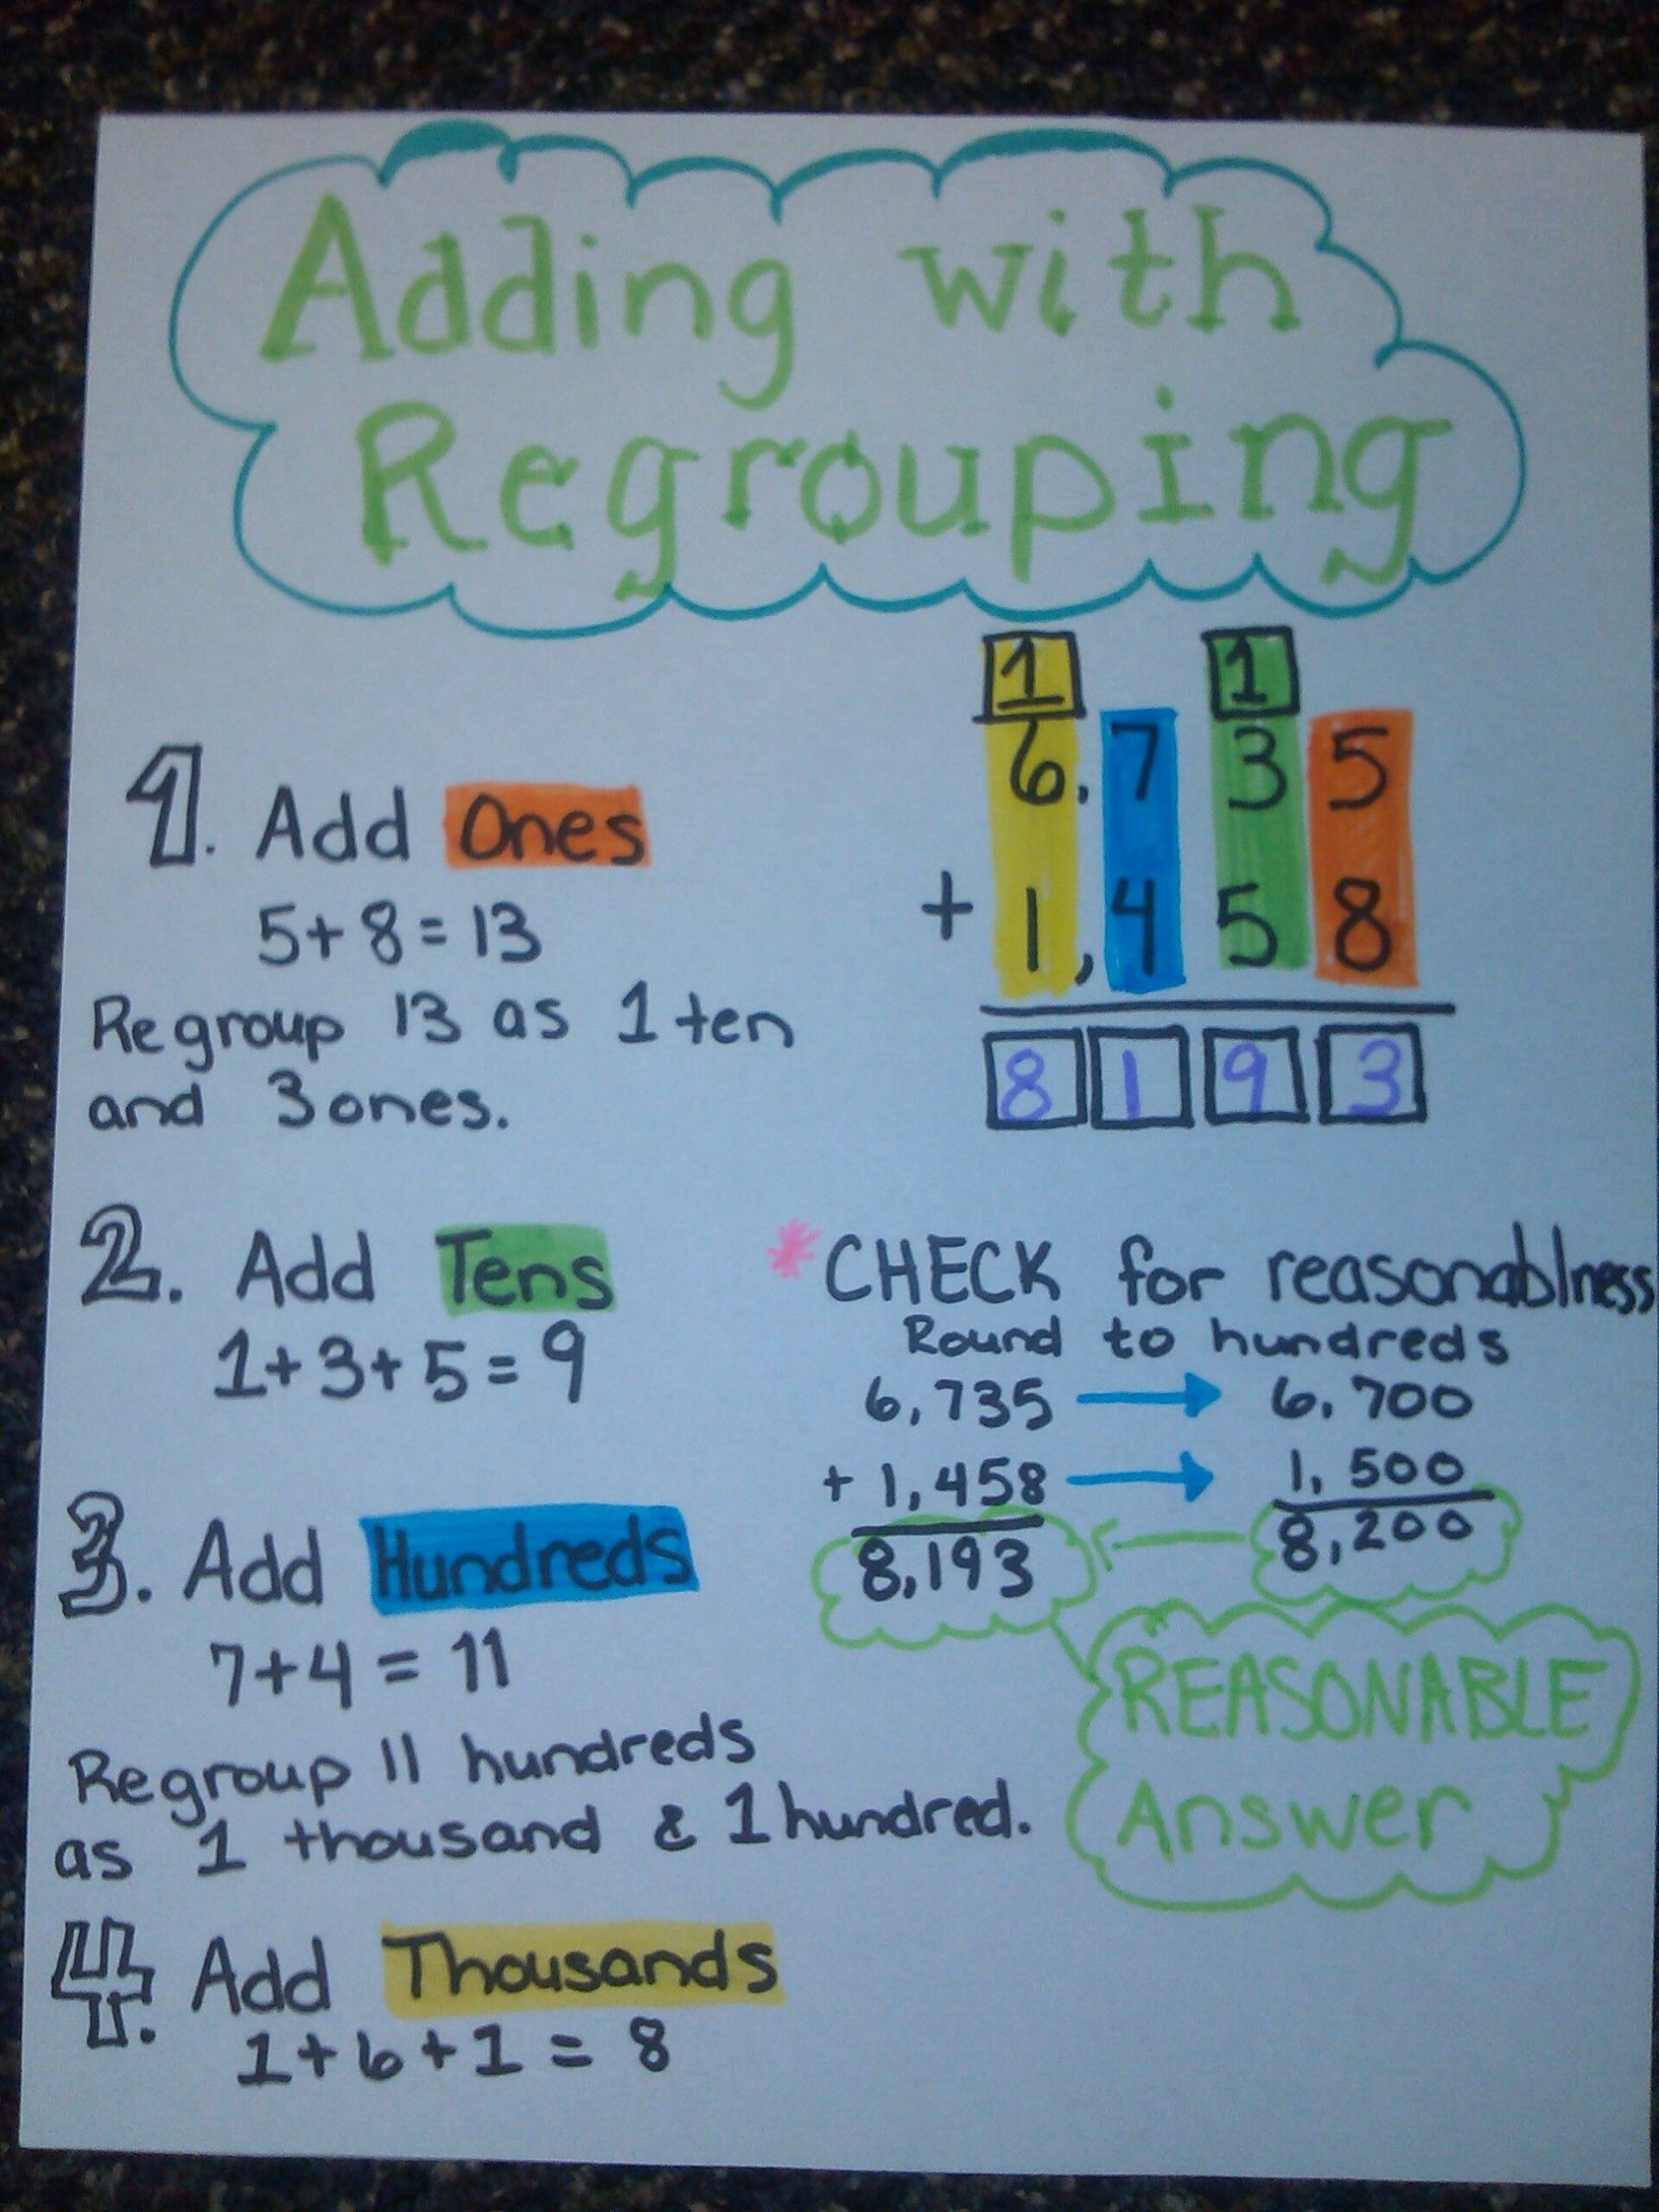 Adding with
Regrouping
1 1
6.735
+ 1,458
8193
1. Add Ones
5+8=13
Regroup 13 as 1 ten
and 3 ones.
2. Add Tens
1+3+5=9
3. Add Hundreds
7+4=11
Regroup 11 hundreds
as 1 thousand & 1 hundred.
4. Add Thousands
1+6+1=8
*CHECK for reasonablness
Round to hundreds
6,735 → 6.700
+ 1,458 → 1,500
8,193 ← 8,200
REASONABLE
Answer